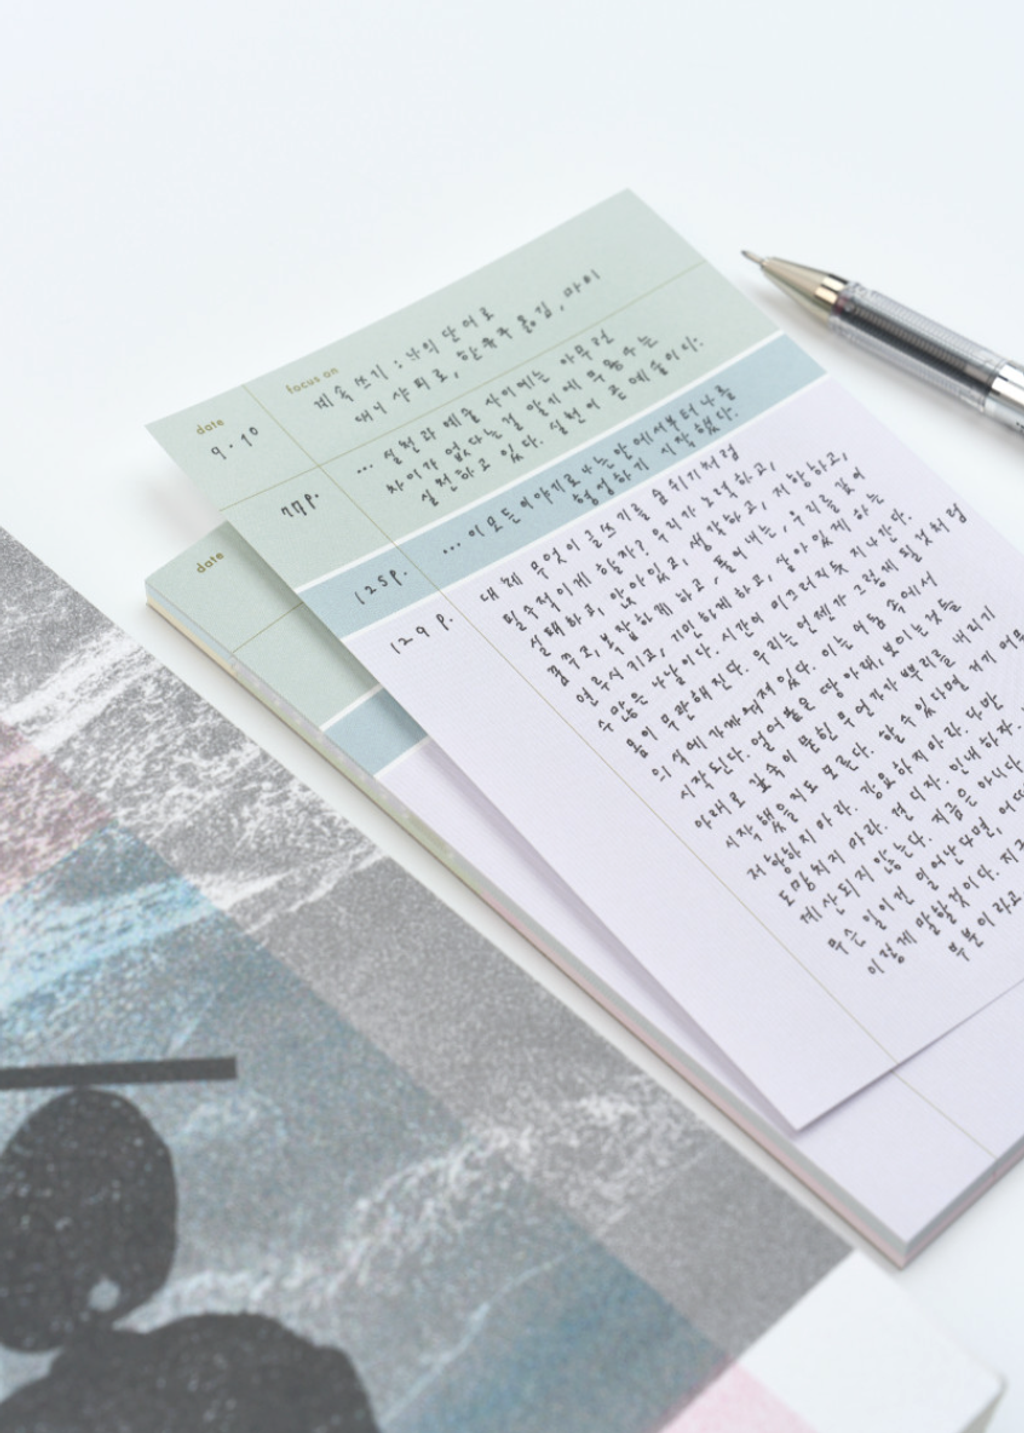 date
focus on
9.10
계속 쓰기 : 나의 단어로
대니 샤피로, 한유주 옮김, 마티
77p.
... 실천과 예술 사이에는 아무런
차이가 없다는걸 알기에 무용수는
실천하고 있다. 실천이 곧 예술이다.
125p.
... 이 모든 이야기로 나는 안에서부터 나를
형성하기 시작했다.
129 p.
대체 무엇이 글쓰기를 숨쉬기처럼
필수적이게 할까? 우리가 노력하고,
실패하고, 앉아있고, 생각하고, 저항하고,
꿈꾸고, 복잡하게 하고, 풀어내는, 우리를 깊이
연루시키고, 기민하게 하고, 살아있게 하는
수많은 나날이다. 시간이 미끄러지듯 지나간다.
몸이 무관해진다. 우리는 언젠가 그렇게 될것처럼
의식에 가까워져 있다. 이는 어둠 속에서
시작된다. 얼어붙은 땅 아래, 보이는 것들
아래로 깊숙이 묻힌 무언가가 뿌리를 내리기
시작했을지도 모른다. 할 수 있다면 거기 머무
저항하지 마라. 강요하지 마라. 다만
도망치지 마라. 견디자. 인내하자.
계산되지 않는다. 지금은 아니다.
무슨 일이건 일어난다면, 어떤
이렇게 말할것이다. 지금
부분이라고
date